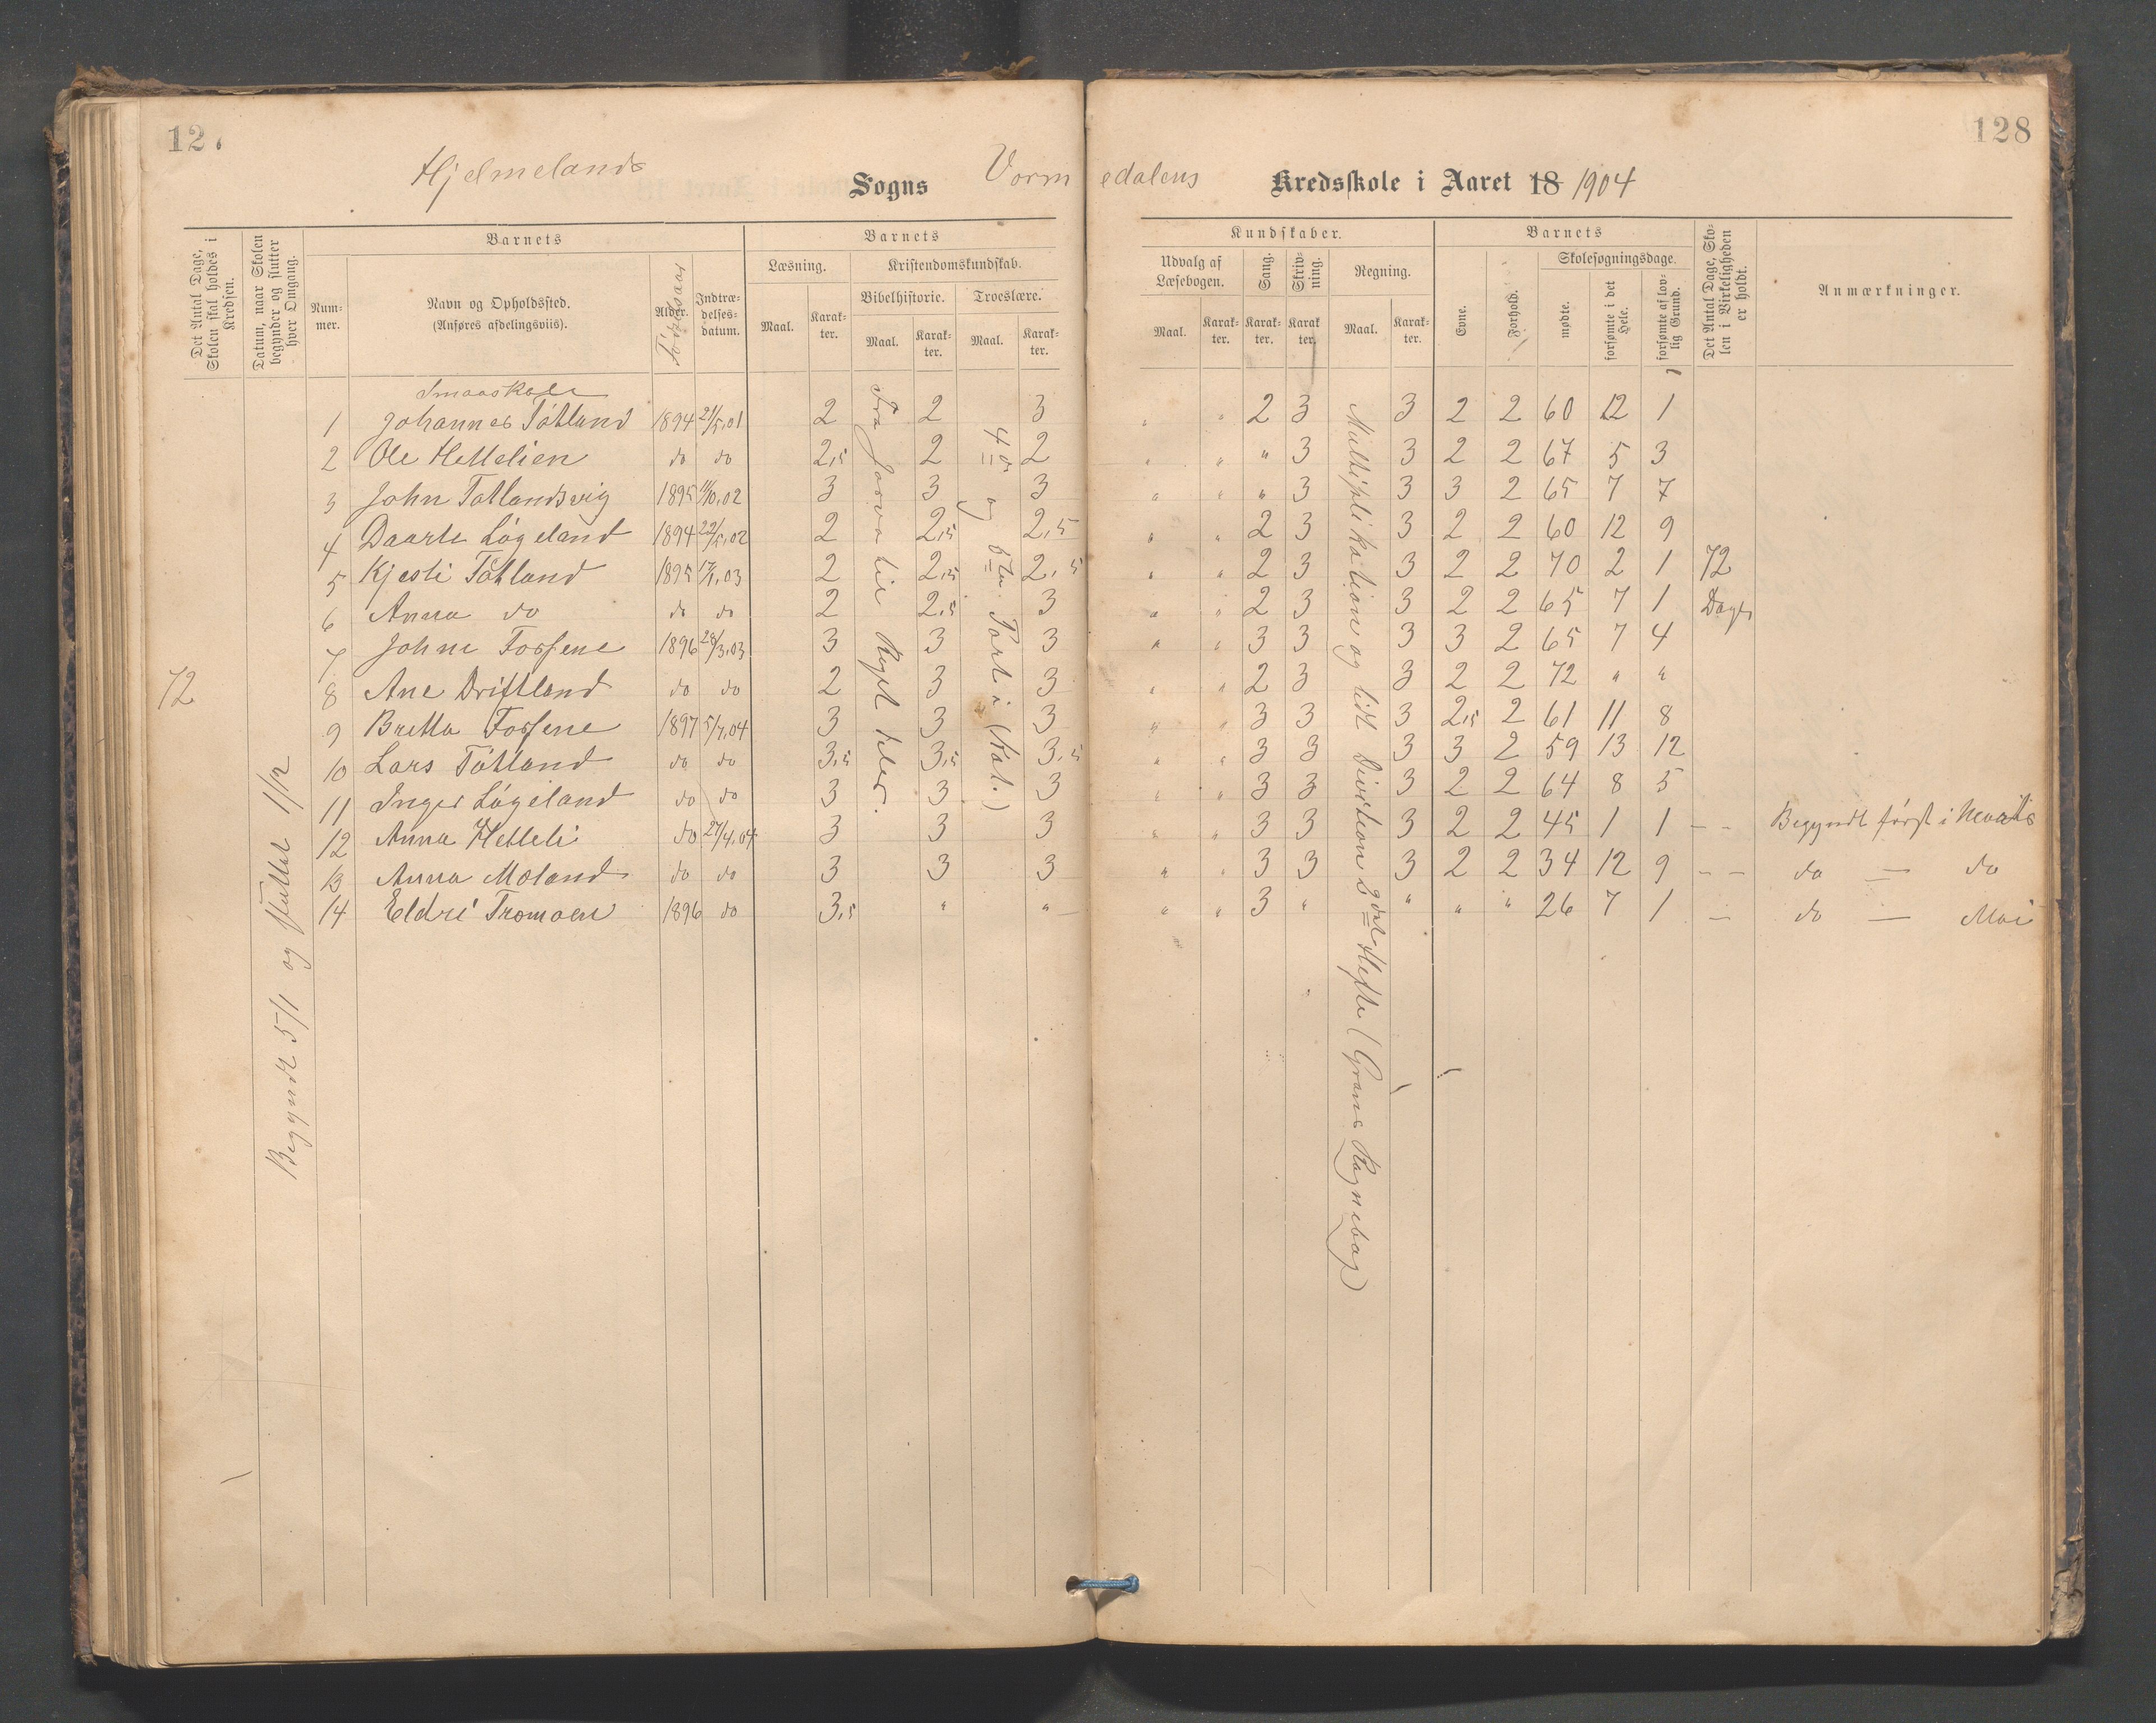 127
128
Hjelmelands Sogns Vormedalens Kredsskole i Aaret 18 1904
Det Antal Dage, Skolen skal holdes i Kredsen.
Datum, naar Skolen begynder og slutter hver Omgang.
Barnets
Num-mer.
Navn og Opholdssted.
(Anføres afdelingsviis).
Alder. Fødselsaar
Indtræ-delses-datum.
Barnets
Læsning.
Maal.
Karak-ter.
Kristendomskundskab.
Bibelhistorie.
Maal.
Karak-ter.
Troeslære.
Maal.
Karak-ter.
Kundskaber.
Udvalg af Læsebogen.
Maal.
Karak-ter.
Sang.
Karak-ter.
Skriv-ning.
Karak-ter.
Regning.
Maal.
Karak-ter.
Barnets
Evne.
Forhold.
Skolesøgningsdage.
mødte.
forsømte i det Hele.
forsømte af lov-lig Grund.
Det Antal Dage, Sko-len i Virkeligheden er holdt.
Anmærkninger.
72
Begyndt 5/1 og sluttet 1/12
Smaaskole
1 Johannes Tøtland 1894 21/5.01 2 2 3 „ „ 2 3 3 2 2 60 12 1
2 Ole Hettelien do do 2,5 2 2 „ „ „ 3 3 2 2 67 5 3
3 John Tøtlandsvig 1895 11/10.02 3 3 3 „ „ „ 3 3 3 2 65 7 7
4 Daarte Løgeland 1894 22/5.02 2 2,5 2,5 „ „ 2 3 3 2 2 60 12 9
5 Kjesti Tøtland 1895 17/1.03 2 2,5 2,5 „ „ 2 3 3 2 2 70 2 1 72
6 Anna do do do 2 2,5 3 „ „ 2 3 3 2 2 65 7 1 Dage
7 Johne Fossene 1896 28/3.03 3 3 3 „ „ 3 3 3 3 2 65 7 4
8 Ane Driftland do do 2 3 3 „ „ 2 3 3 2 2 72 „ „
9 Bretta Fossene 1897 5/7.04 3 3 3 „ „ 3 3 3 2,5 2 61 11 8
10 Lars Tøtland do do 3,5 3,5 3,5 „ „ 3 3 3 3 2 59 13 12
11 Inger Løgeland do do 3 3 3 „ „ 3 3 3 2 2 64 8 5
12 Anna Hetteli do 27/4.04 3 3 3 „ „ 3 3 3 2 2 45 1 1 – – Begyndt først i
13 Anna Moland do do 3 3 3 „ „ 3 3 3 2 2 34 12 9 – – do — do
14 Eldri Tromoen 1896 do 3,5 „ „ „ „ 3 „ „ „ „ 26 7 1 – do — Mai
Fra Josva til Roget tider.
4de og 5te Part i (Kat.)
Multiplikation og lidt Division 2det Hefte (Grans Regnebog)